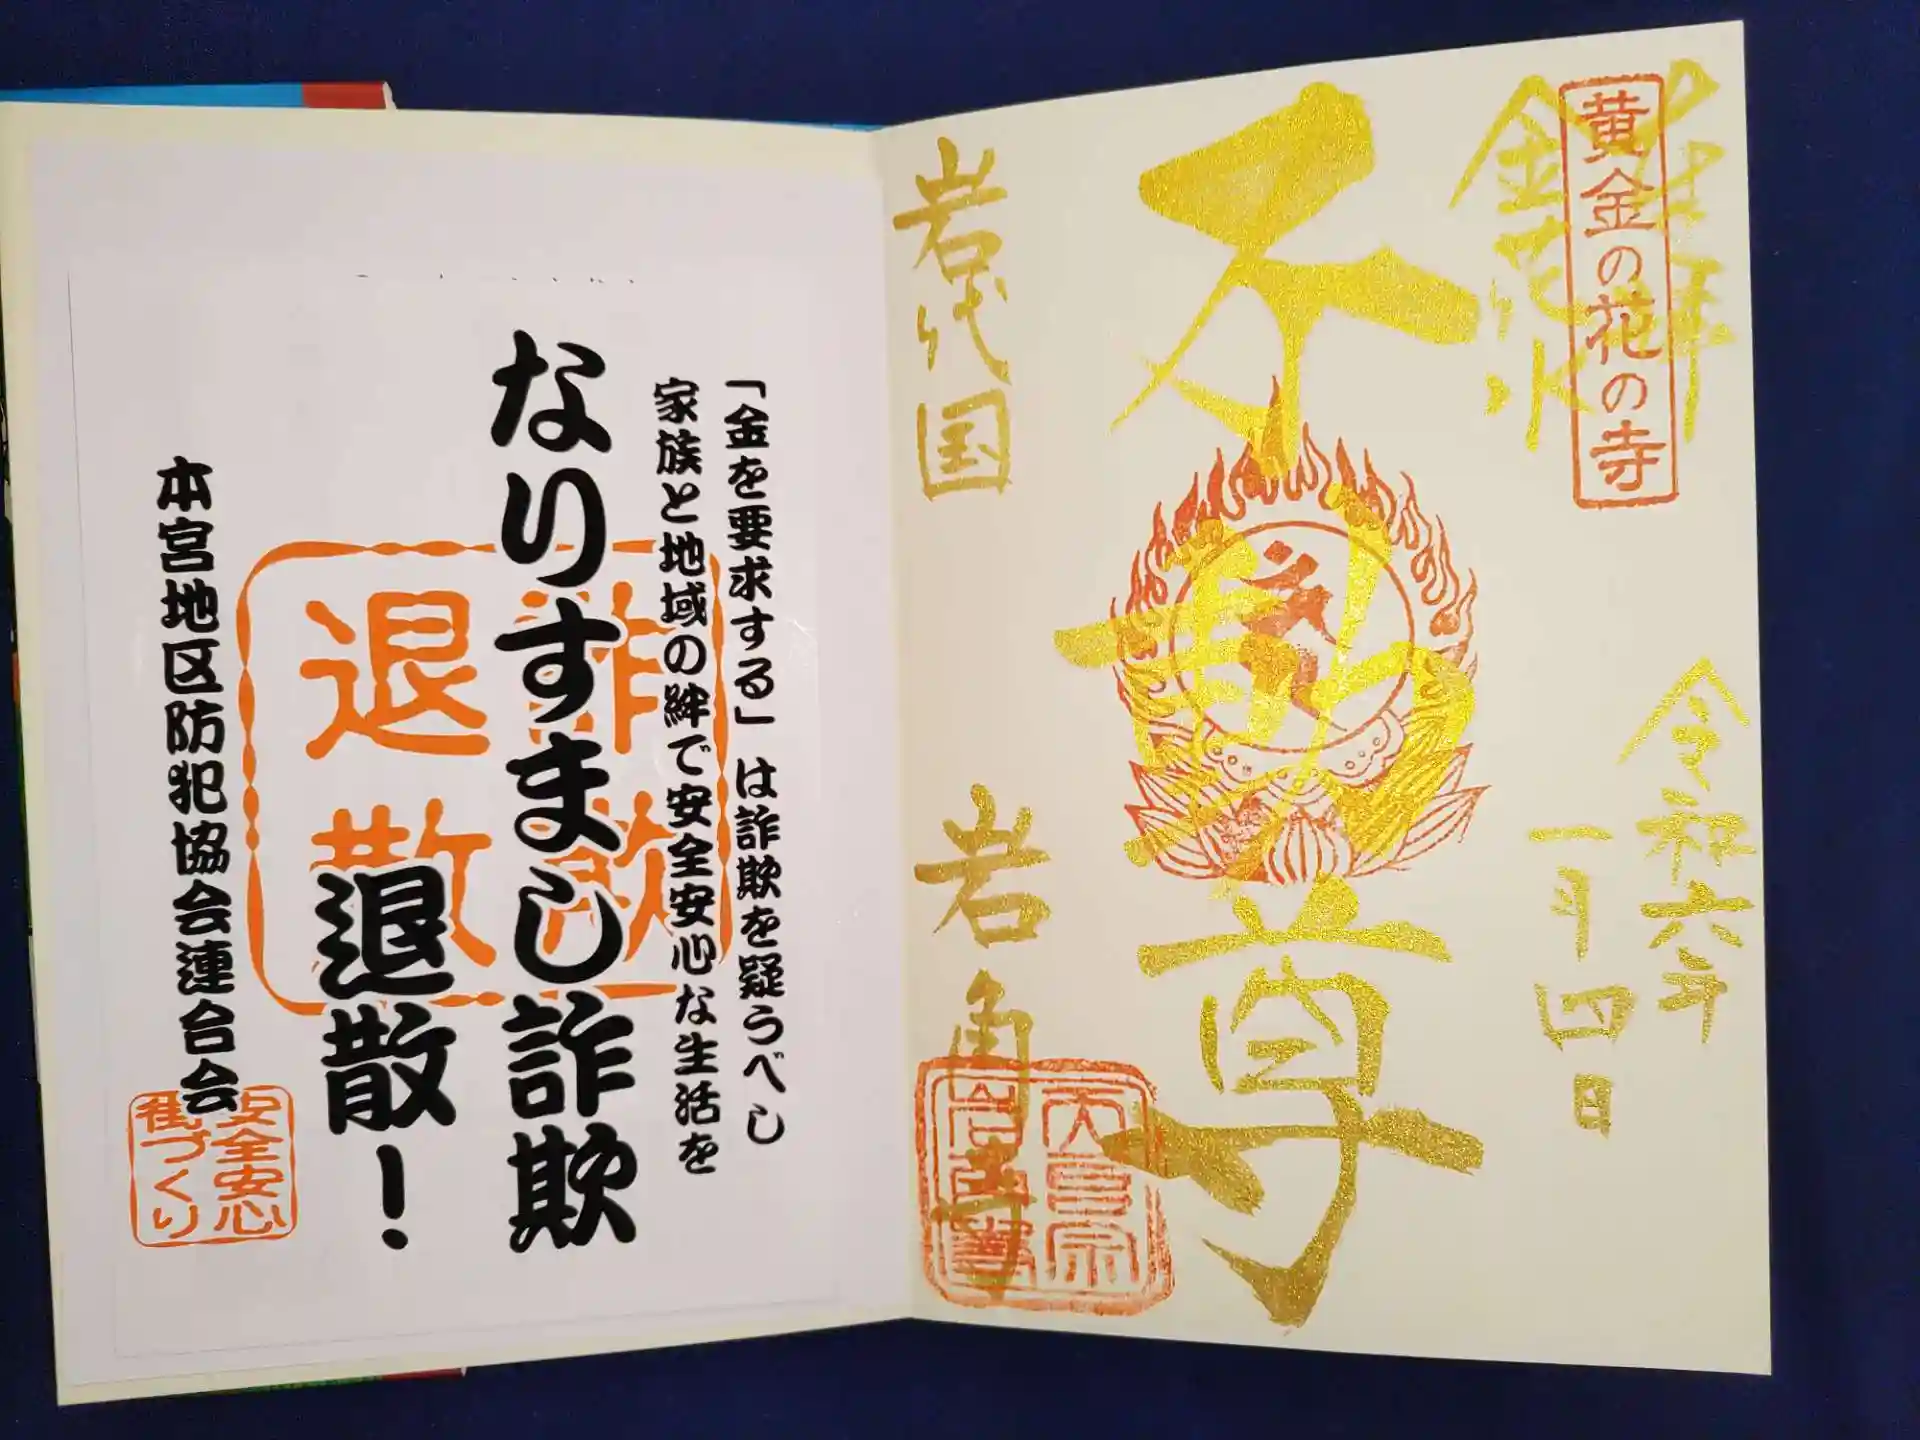 奉拝
黄金の花の寺
令和六年
一月四日
不動尊
岩代国 岩角寺
「金を要求する」は詐欺を疑うべし
家族と地域の絆で安全安心な生活を
なりすまし詐欺
退散！
詐欺
退散
本宮地区防犯協会連合会
安全安心
街づくり